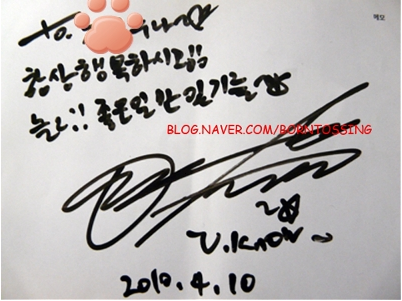 메모
to.
항상 행복하시고!!
늘~!! 좋은일만 있기를
BLOG.NAVER.COM/BORNTOSSING
U.Know~
2010.4.10